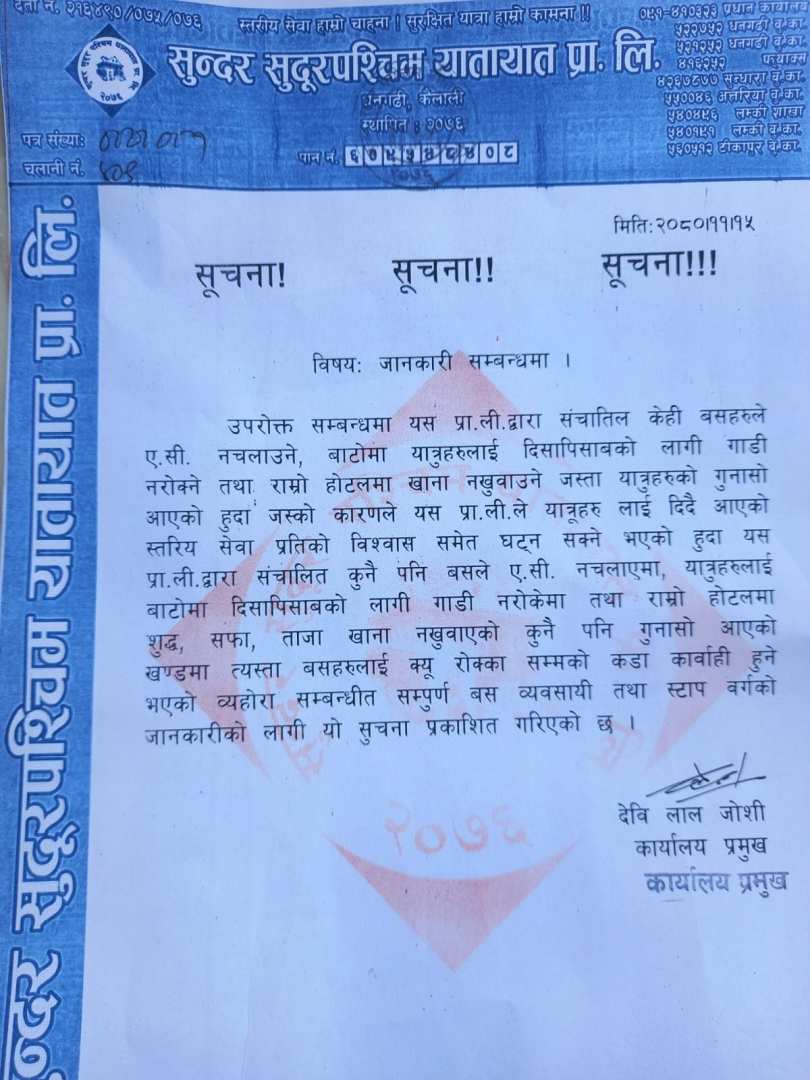 दर्ता नं. २१६४९०/०७५/०७६
स्तरीय सेवा हाम्रो चाहना ! सुरक्षित यात्रा हाम्रो कामना !!
सुन्दर सुदूरपश्चिम यातायात प्रा. लि.
धनगढी, कैलाली
स्थापित : २०७६
पत्र संख्याः
चलानी नं.
पान नं.
०९१-४१०३२३ प्रधान कार्यालय
५२२७५२ धनगढी बु.का.
५२१२५२ धनगढी बु.का.
४१६२५२ फ्याक्स
४२६७८७० सुन्धारा बु.का.
५५००४६ अत्तरिया बु.का.
५४०४९६ लम्की शाखा
५४०१९१ लम्की बु.का.
५६०५१२ टीकापुर बु.का.
सुन्दर सुदूरपश्चिम यातायात प्रा. लि.
मिति:२०८०।११।१५
सूचना! सूचना!! सूचना!!!
विषय: जानकारी सम्बन्धमा ।
उपरोक्त सम्बन्धमा यस प्रा.ली.द्वारा संचातिल केही बसहरुले
ए.सी. नचलाउने, बाटोमा यात्रुहरुलाई दिसापिसाबको लागी गाडी
नरोक्ने तथा राम्रो होटलमा खाना नखुवाउने जस्ता यात्रुहरुको गुनासो
आएको हुदा जस्को कारणले यस प्रा.ली.ले यात्रूहरु लाई दिदै आएको
स्तरिय सेवा प्रतिको विश्वास समेत घट्न सक्ने भएको हुदा यस
प्रा.ली.द्वारा संचालित कुनै पनि बसले ए.सी. नचलाएमा, यात्रुहरुलाई
बाटोमा दिसापिसाबको लागी गाडी नरोकेमा तथा राम्रो होटलमा
शुद्ध, सफा, ताजा खाना नखुवाएको कुनै पनि गुनासो आएको
खण्डमा त्यस्ता बसहरुलाई क्यू रोक्का सम्मको कडा कार्वाही हुने
भएको व्यहोरा सम्बन्धीत सम्पुर्ण बस व्यवसायी तथा स्टाप वर्गको
जानकारीको लागी यो सुचना प्रकाशित गरिएको छ ।
२०७६
देवि लाल जोशी
कार्यालय प्रमुख
कार्यालय प्रमुख